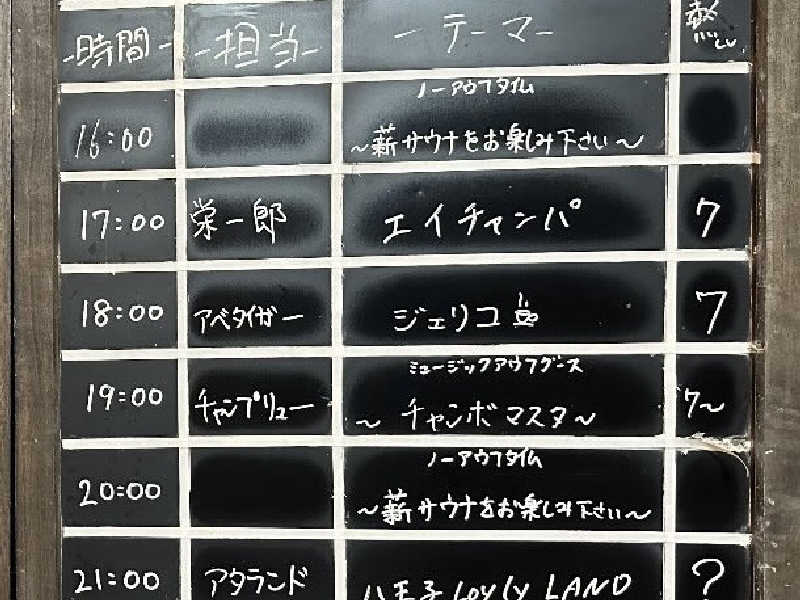 -時間- -担当- -テーマ- 熱
ノーアウフタイム
16:00 ~薪サウナをお楽しみ下さい~
17:00 栄一郎 エイチャンパ 7
18:00 アベタイガー ジェリコ 7
ミュージックアウフグース
19:00 チャンプリュー ~チャンボマスタ~ 7~
ノーアウフタイム
20:00 ~薪サウナをお楽しみ下さい~
21:00 アタランド 八王子 loyly LAND ?